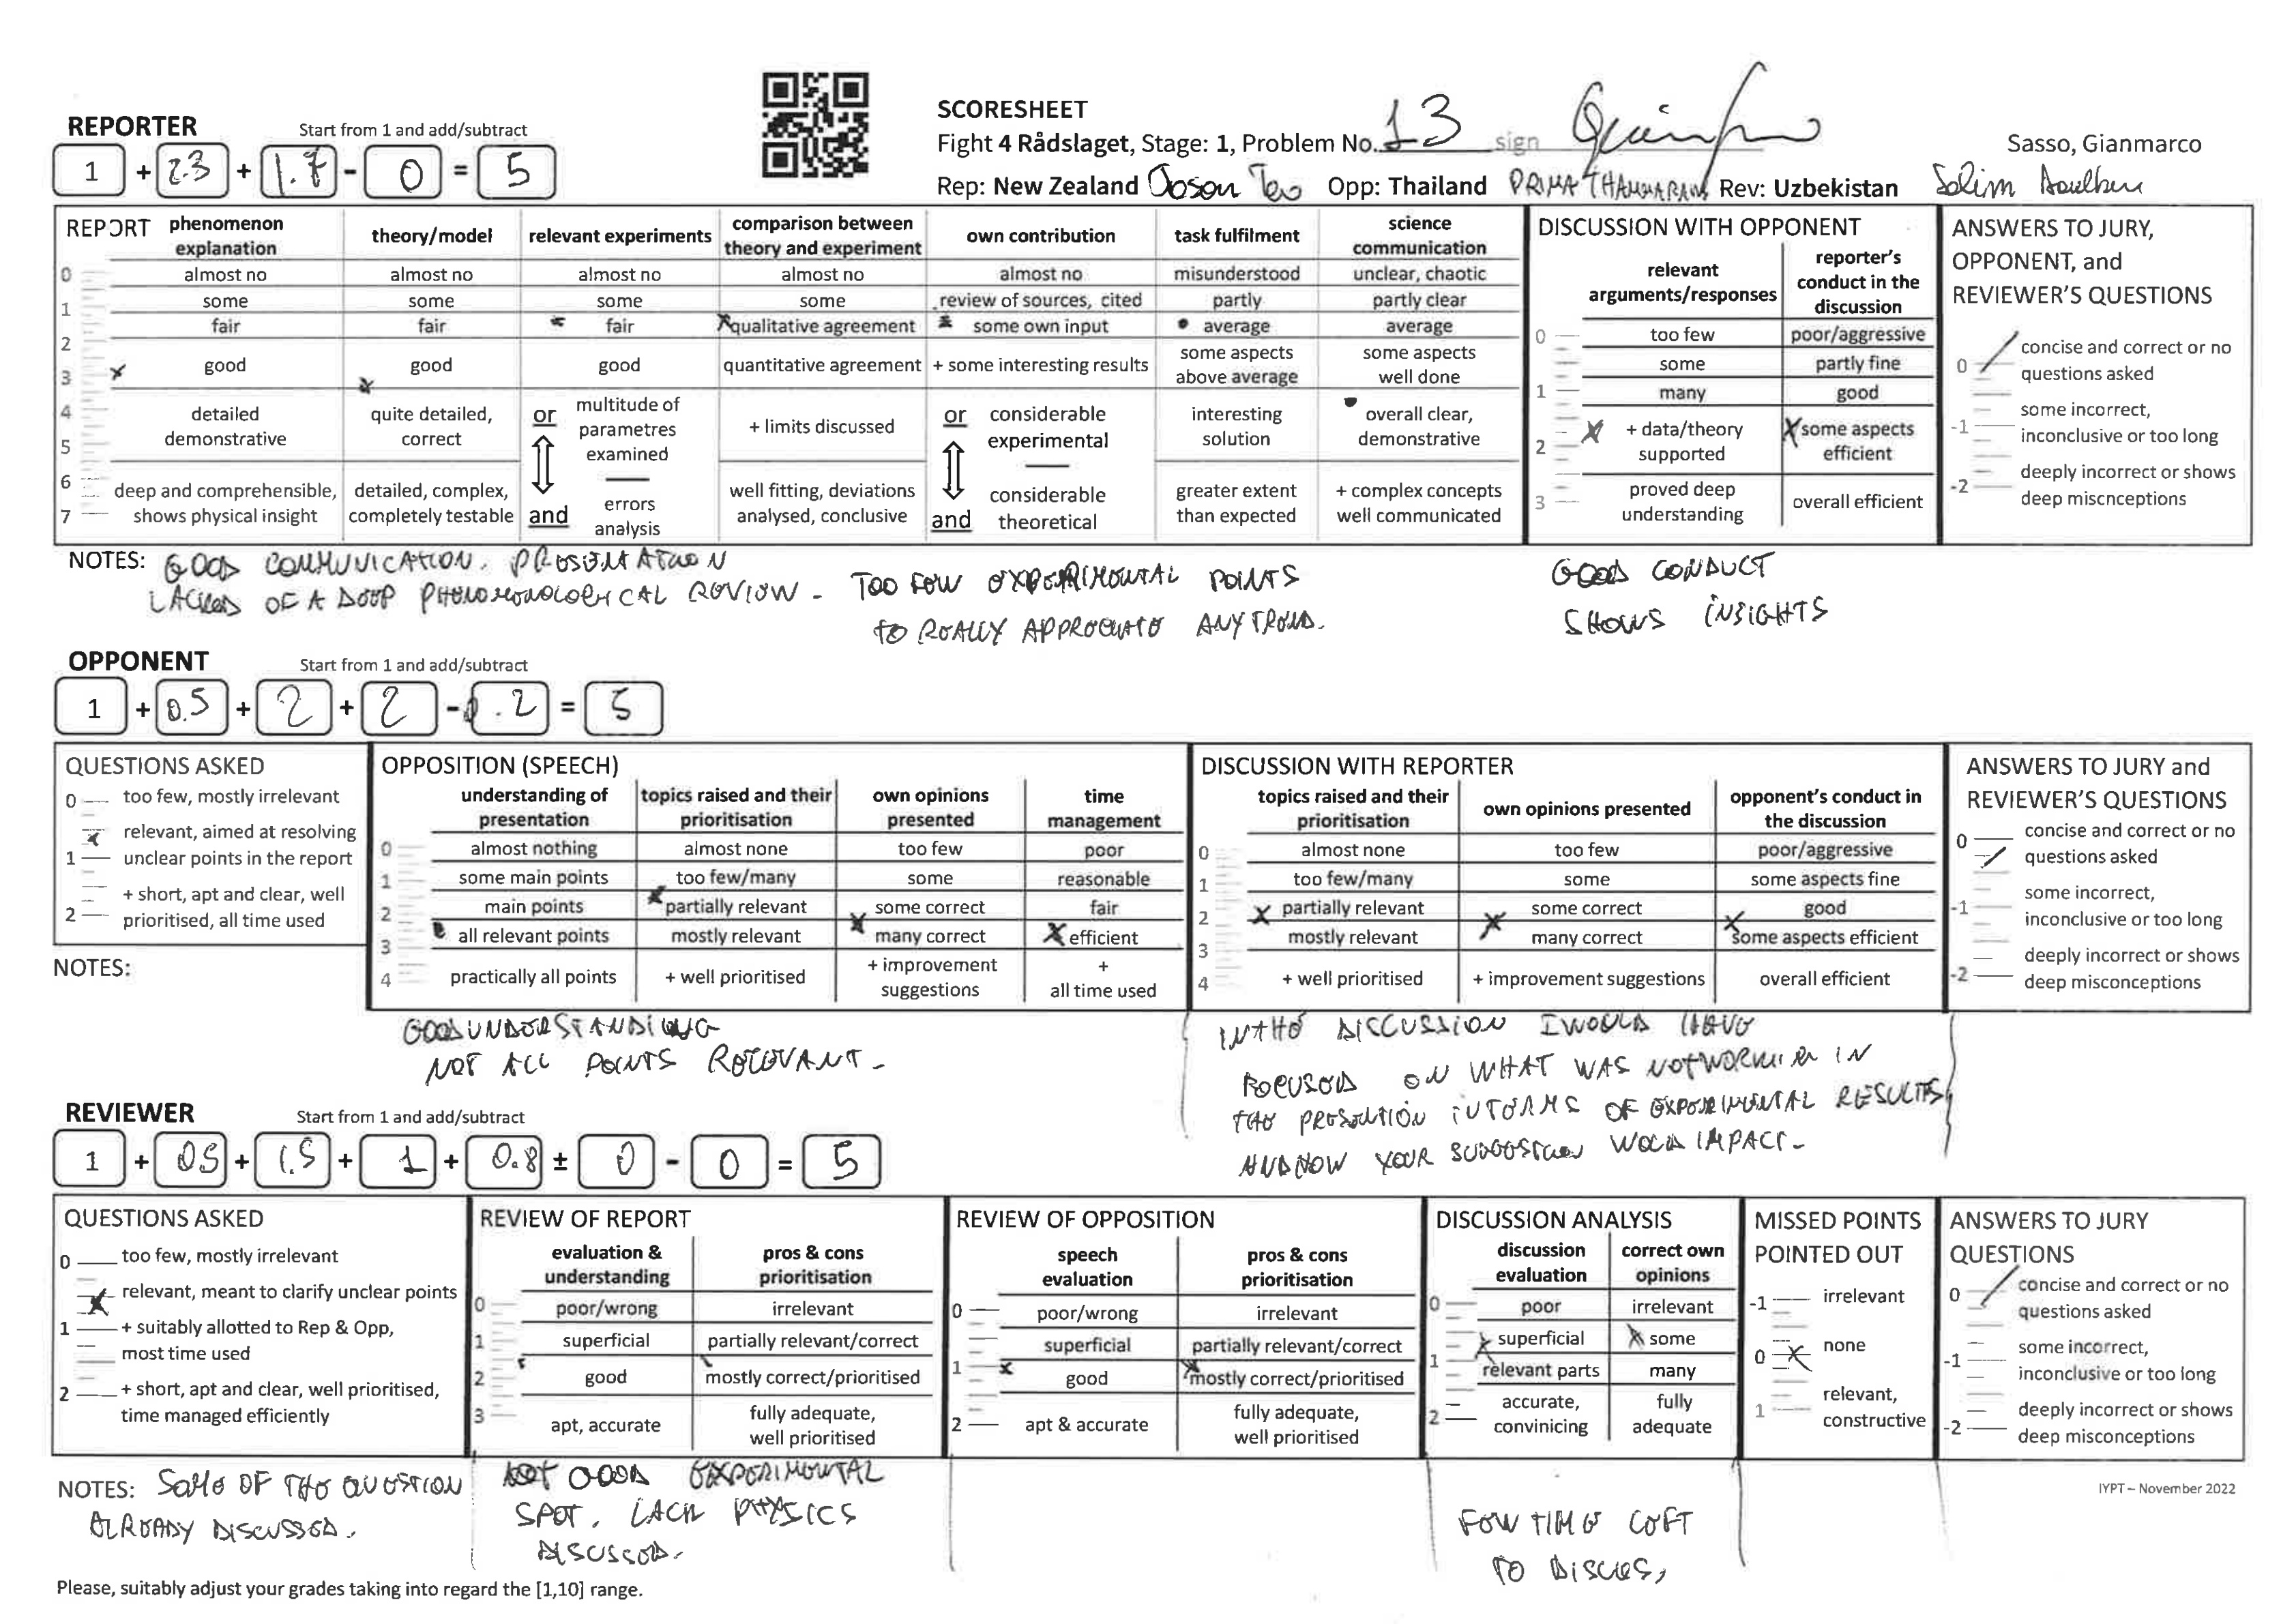 REPORTER
Start from 1 and add/subtract
1 + 2.3 + 1.7 - 0 = 5
SCORESHEET
Fight 4 Rådslaget, Stage: 1, Problem No. 13 sign
Rep: New Zealand Opp: Thailand PRIMA Rev: Uzbekistan
Sasso, Gianmarco
REPORT
phenomenon explanation
theory/model
relevant experiments
comparison between theory and experiment
own contribution
task fulfilment
science communication
0 almost no almost no almost no almost no almost no misunderstood unclear, chaotic
1 some some some some review of sources, cited partly partly clear
fair fair fair qualitative agreement some own input average average
2
3 good good good quantitative agreement + some interesting results some aspects above average some aspects well done
4 5 detailed demonstrative quite detailed, correct or multitude of parametres examined + limits discussed or considerable experimental interesting solution overall clear, demonstrative
6 7 deep and comprehensible, shows physical insight detailed, complex, completely testable and errors analysis well fitting, deviations analysed, conclusive and considerable theoretical greater extent than expected + complex concepts well communicated
DISCUSSION WITH OPPONENT
relevant arguments/responses
reporter's conduct in the discussion
0 too few poor/aggressive
some partly fine
1 many good
2 + data/theory supported some aspects efficient
3 proved deep understanding overall efficient
ANSWERS TO JURY, OPPONENT, and REVIEWER'S QUESTIONS
0 concise and correct or no questions asked
-1 some incorrect, inconclusive or too long
-2 deeply incorrect or shows deep miscnceptions
NOTES: GOOD COMMUNICATION. PRESENTATION
LACKED OF A DEEP PHENOMENOLOGICAL REVIEW - TOO FEW EXPERIMENTAL POINTS
TO REALLY APPRECIATE ANY TREND.
GOOD CONDUCT
SHOWS INSIGHTS
OPPONENT
Start from 1 and add/subtract
1 + 0.5 + 2 + 2 - 0.2 = 5
QUESTIONS ASKED
0 too few, mostly irrelevant
relevant, aimed at resolving
1 unclear points in the report
+ short, apt and clear, well
2 prioritised, all time used
NOTES:
OPPOSITION (SPEECH)
understanding of presentation
topics raised and their prioritisation
own opinions presented
time management
0 almost nothing almost none too few poor
1 some main points too few/many some reasonable
2 main points partially relevant some correct fair
3 all relevant points mostly relevant many correct efficient
4 practically all points + well prioritised + improvement suggestions + all time used
DISCUSSION WITH REPORTER
topics raised and their prioritisation
own opinions presented
opponent's conduct in the discussion
0 almost none too few poor/aggressive
1 too few/many some some aspects fine
2 partially relevant some correct good
3 mostly relevant many correct some aspects efficient
4 + well prioritised + improvement suggestions overall efficient
ANSWERS TO JURY and REVIEWER'S QUESTIONS
0 concise and correct or no questions asked
-1 some incorrect, inconclusive or too long
-2 deeply incorrect or shows deep misconceptions
GOOD UNDERSTANDING
NOT ALL POINTS RELEVANT -
IN THE DISCUSSION I WOULD HAVE
FOCUSED ON WHAT WAS NOT WORKING IN
THE PRESENTION IN TERMS OF EXPERIMENTAL RESULTS
AND HOW YOUR SUGGESTION WOULD IMPACT -
REVIEWER
Start from 1 and add/subtract
1 + 0.5 + 1.5 + 1 + 0.8 ± 0 - 0 = 5
QUESTIONS ASKED
0 too few, mostly irrelevant
relevant, meant to clarify unclear points
1 + suitably allotted to Rep & Opp, most time used
2 + short, apt and clear, well prioritised, time managed efficiently
REVIEW OF REPORT
evaluation & understanding
pros & cons prioritisation
0 poor/wrong irrelevant
1 superficial partially relevant/correct
2 good mostly correct/prioritised
3 apt, accurate fully adequate, well prioritised
REVIEW OF OPPOSITION
speech evaluation
pros & cons prioritisation
0 poor/wrong irrelevant
superficial partially relevant/correct
1 good mostly correct/prioritised
2 apt & accurate fully adequate, well prioritised
DISCUSSION ANALYSIS
discussion evaluation
correct own opinions
0 poor irrelevant
superficial some
1 relevant parts many
2 accurate, convinicing fully adequate
MISSED POINTS POINTED OUT
-1 irrelevant
0 none
1 relevant, constructive
ANSWERS TO JURY QUESTIONS
0 concise and correct or no questions asked
-1 some incorrect, inconclusive or too long
-2 deeply incorrect or shows deep misconceptions
NOTES: SOME OF THE QUESTION
ALREADY DISCUSSED.
NOT GOOD EXPERIMENTAL
SPOT. LACK PHYSICS
DISCUSSED.
FEW TIME LEFT
TO DISCUSS,
IYPT – November 2022
Please, suitably adjust your grades taking into regard the [1,10] range.